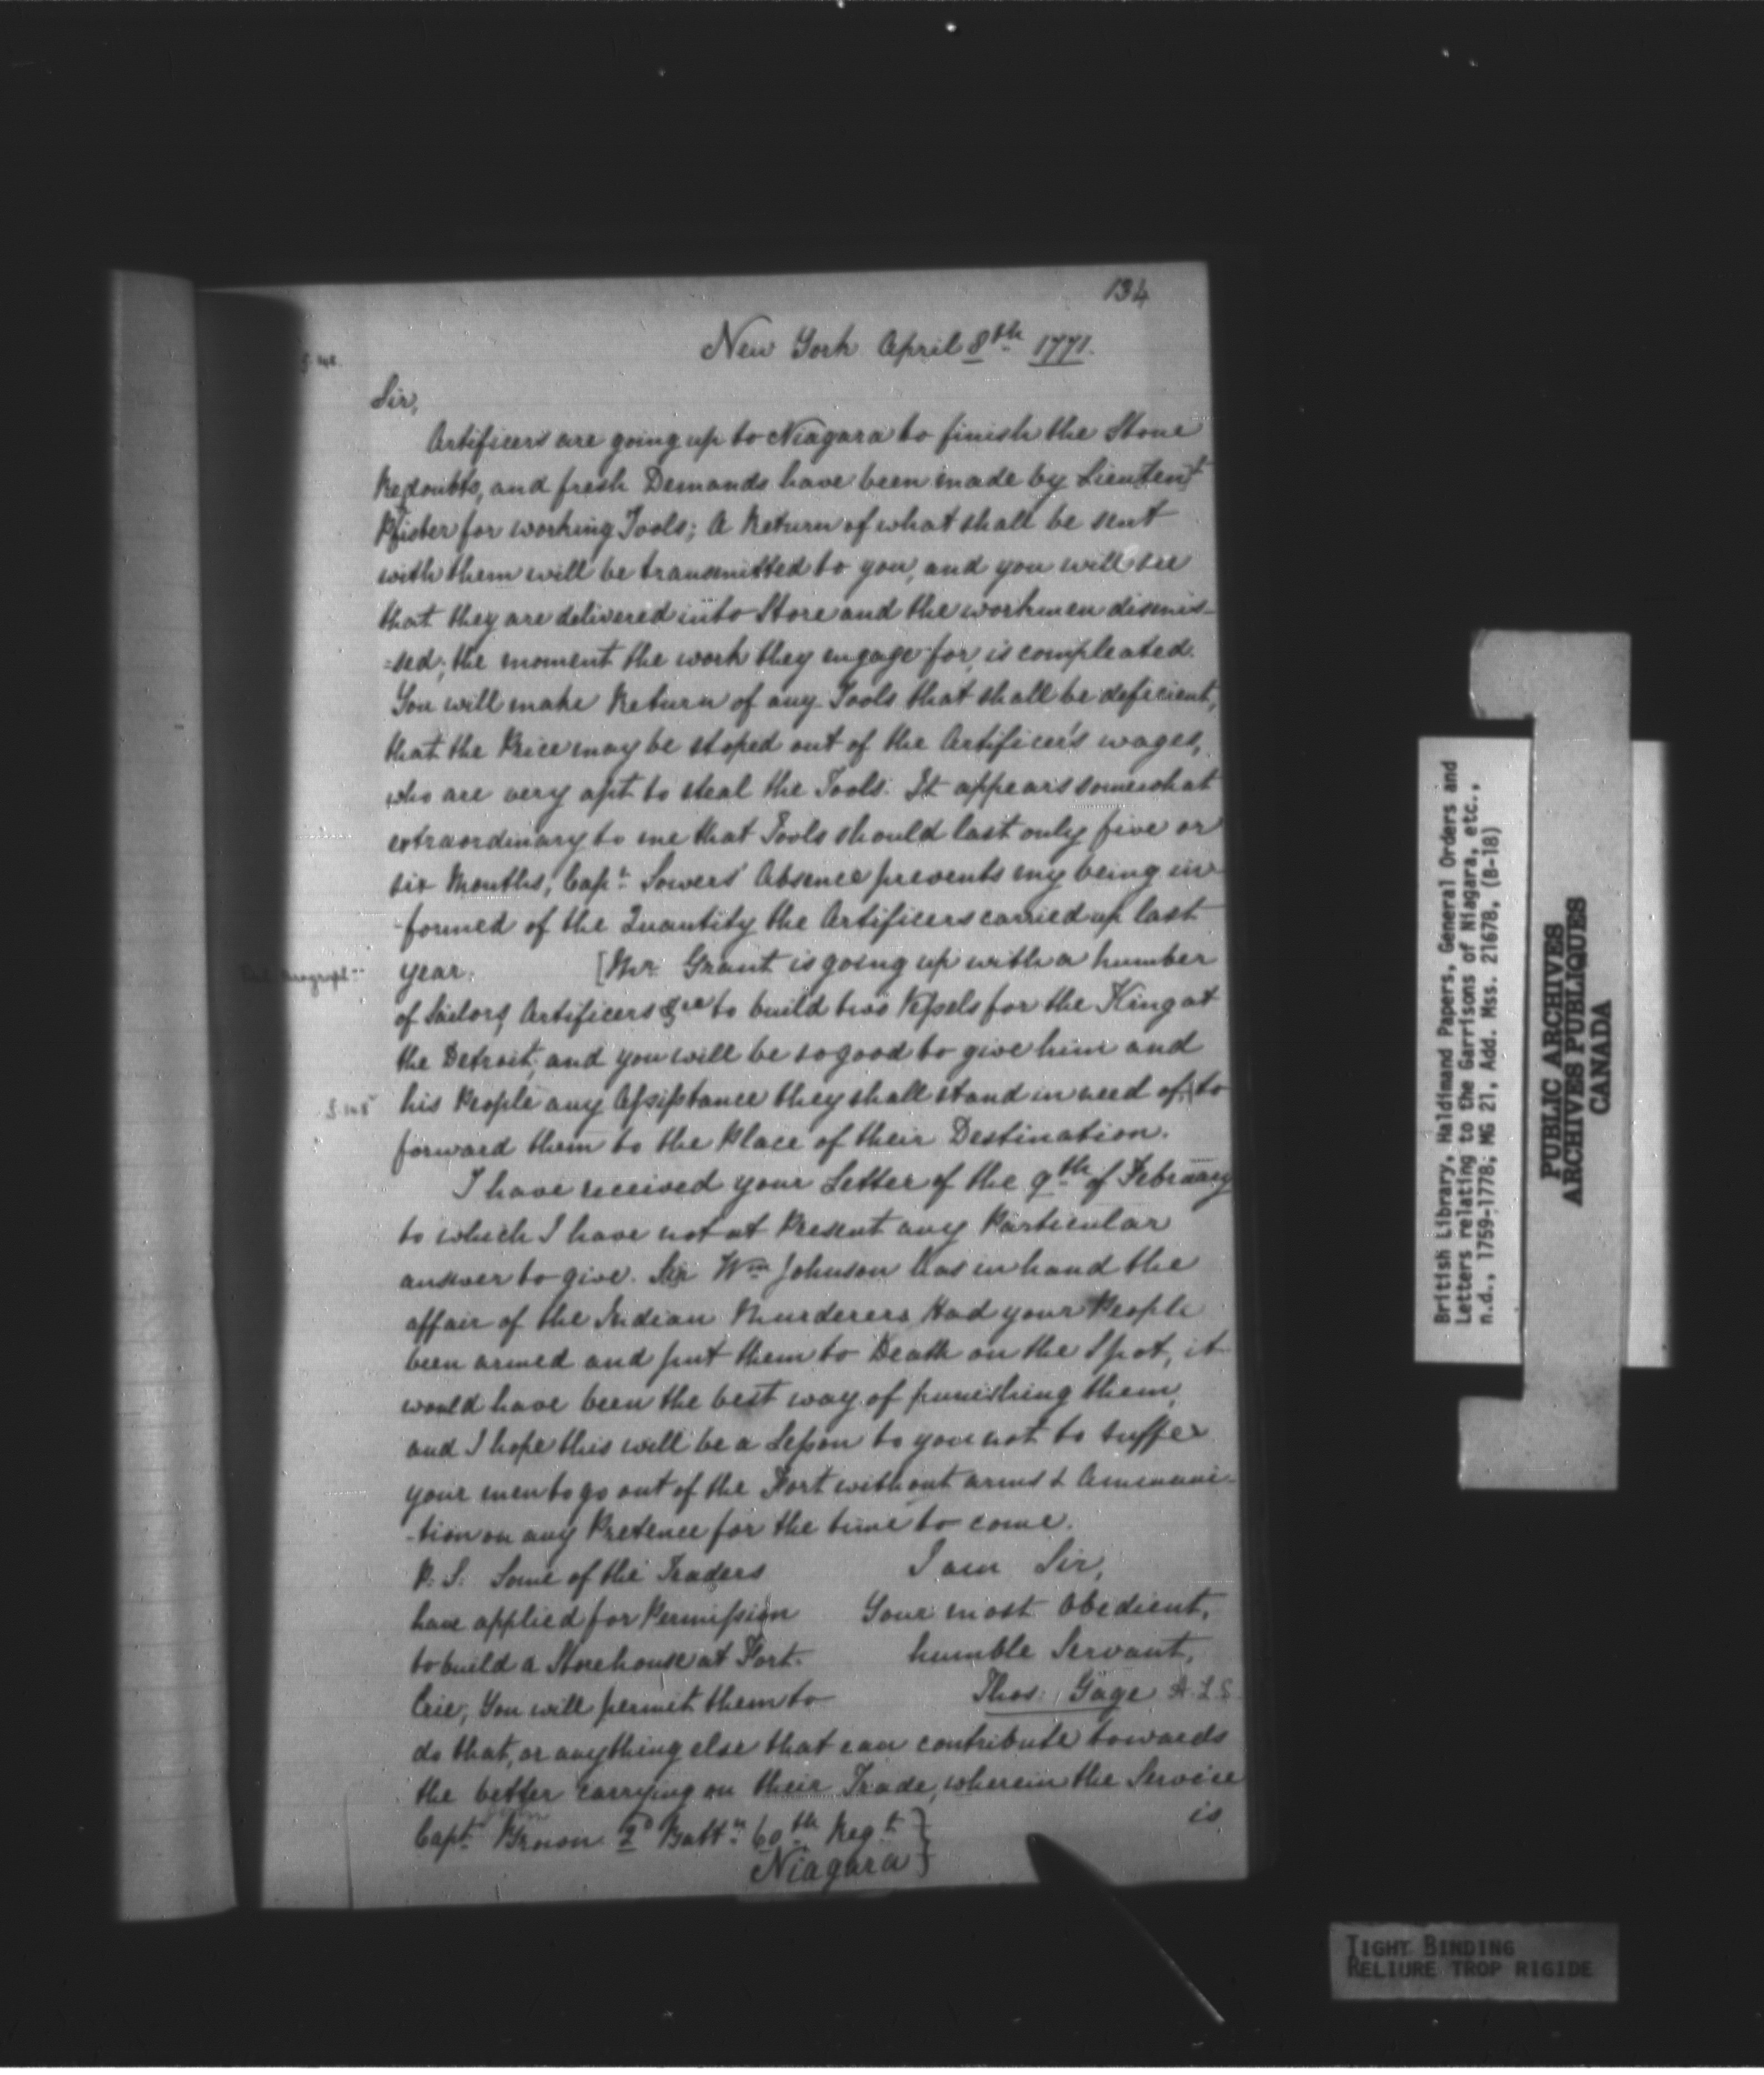 134
New York April 8th 1771.
Sir,
Artificers are going up to Niagara to finish the Stone
Redoubts, and fresh Demands have been made by Lieutent
Pfister for working Tools; A Return of what shall be sent
with them will be transmitted to you, and you will see
that they are delivered into Store and the workmen dismis-
=sed, the moment the work they engage for, is compleated.
You will make Return of any Tools that shall be deficient,
that the Price may be stoped out of the Artificer's wages,
who are very apt to steal the Tools. It appears somewhat
extraordinary to me that Tools should last only five or
six Months; Capt. Sowers' Absence prevents my being in
-formed of the Quantity the Artificers carried up last
year. [Mr. Grant is going up with a number
of Sailors Artificers &ca to build two Vessels for the King at
the Detroit, and you will be so good to give him and
his People any Assistance they shall stand in need of, to
forward them to the Place of their Destination.
I have received your Letter of the 9th of February
to which I have not at Present any Particular
answer to give. Sir Wm Johnson has in hand the
affair of the Indian Murderers, Had your People
been armed and put them to Death on the Spot, it
would have been the best way of punishing them,
and I hope this will be a Lesson to you not to suffer
your men to go out of the Fort without arms & Ammuni-
-tion on any Pretence for the time to come.
P.S. Some of the Traders I am Sir,
have applied for Permission Your most Obedient,
to build a Storehouse at Fort humble Servant,
Erie; You will permit them to Thos: Gage
do that, or anything else that can contribute towards
the better carrying on their Trade, wherein the Service
is
Capt. Brown 2d Battn. 60th Regt. }
Niagara }
British Library, Haldimand Papers, General Orders and
Letters relating to the Garrisons of Niagara, etc.,
n.d., 1759-1778; MG 21, Add. Mss. 21678, (B-18)
PUBLIC ARCHIVES
ARCHIVES PUBLIQUES
CANADA
TIGHT BINDING
RELIURE TROP RIGIDE